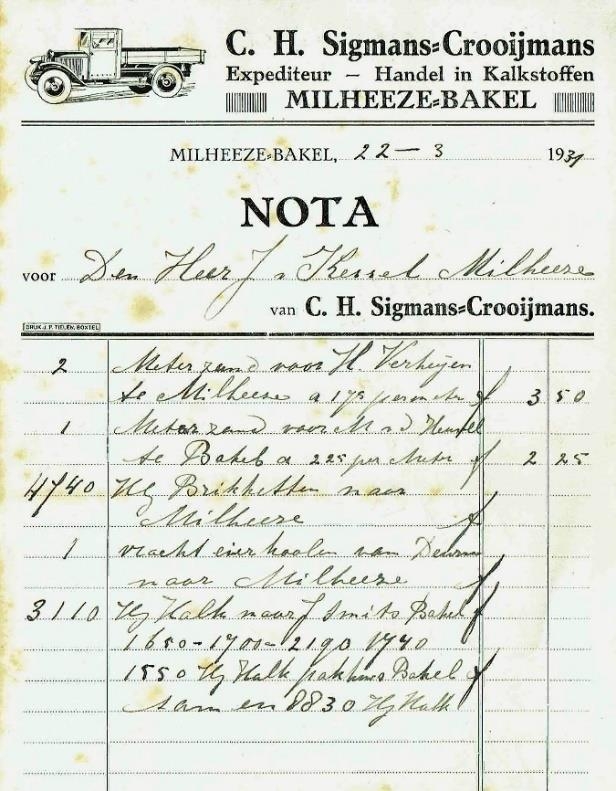 C. H. Sigmans=Crooijmans
Expediteur — Handel in Kalkstoffen
MILHEEZE=BAKEL
MILHEEZE=BAKEL, 22 — 3 1931
NOTA
voor Den Heer J v Kessel Milheeze
van C. H. Sigmans=Crooijmans.
DRUK J. P. TIELEN, BOXTEL
2 Meter zand voor H. Verheijen
te Milheeze a 175 per meter f 3 50
1 Meter zand voor M v d Heuvel
te Bakel a 225 per Meter f 2 25
4740 Kg Brikketten naar
Milheeze f
1 vracht eierkoolen van Deurne
naar Milheeze f
3110 Kg Kalk naar J Smits Bakel f
1650 - 1700 - 2190 1740
1550 Kg Kalk pakhuis Bakel f
sam en 8830 Kg Kalk